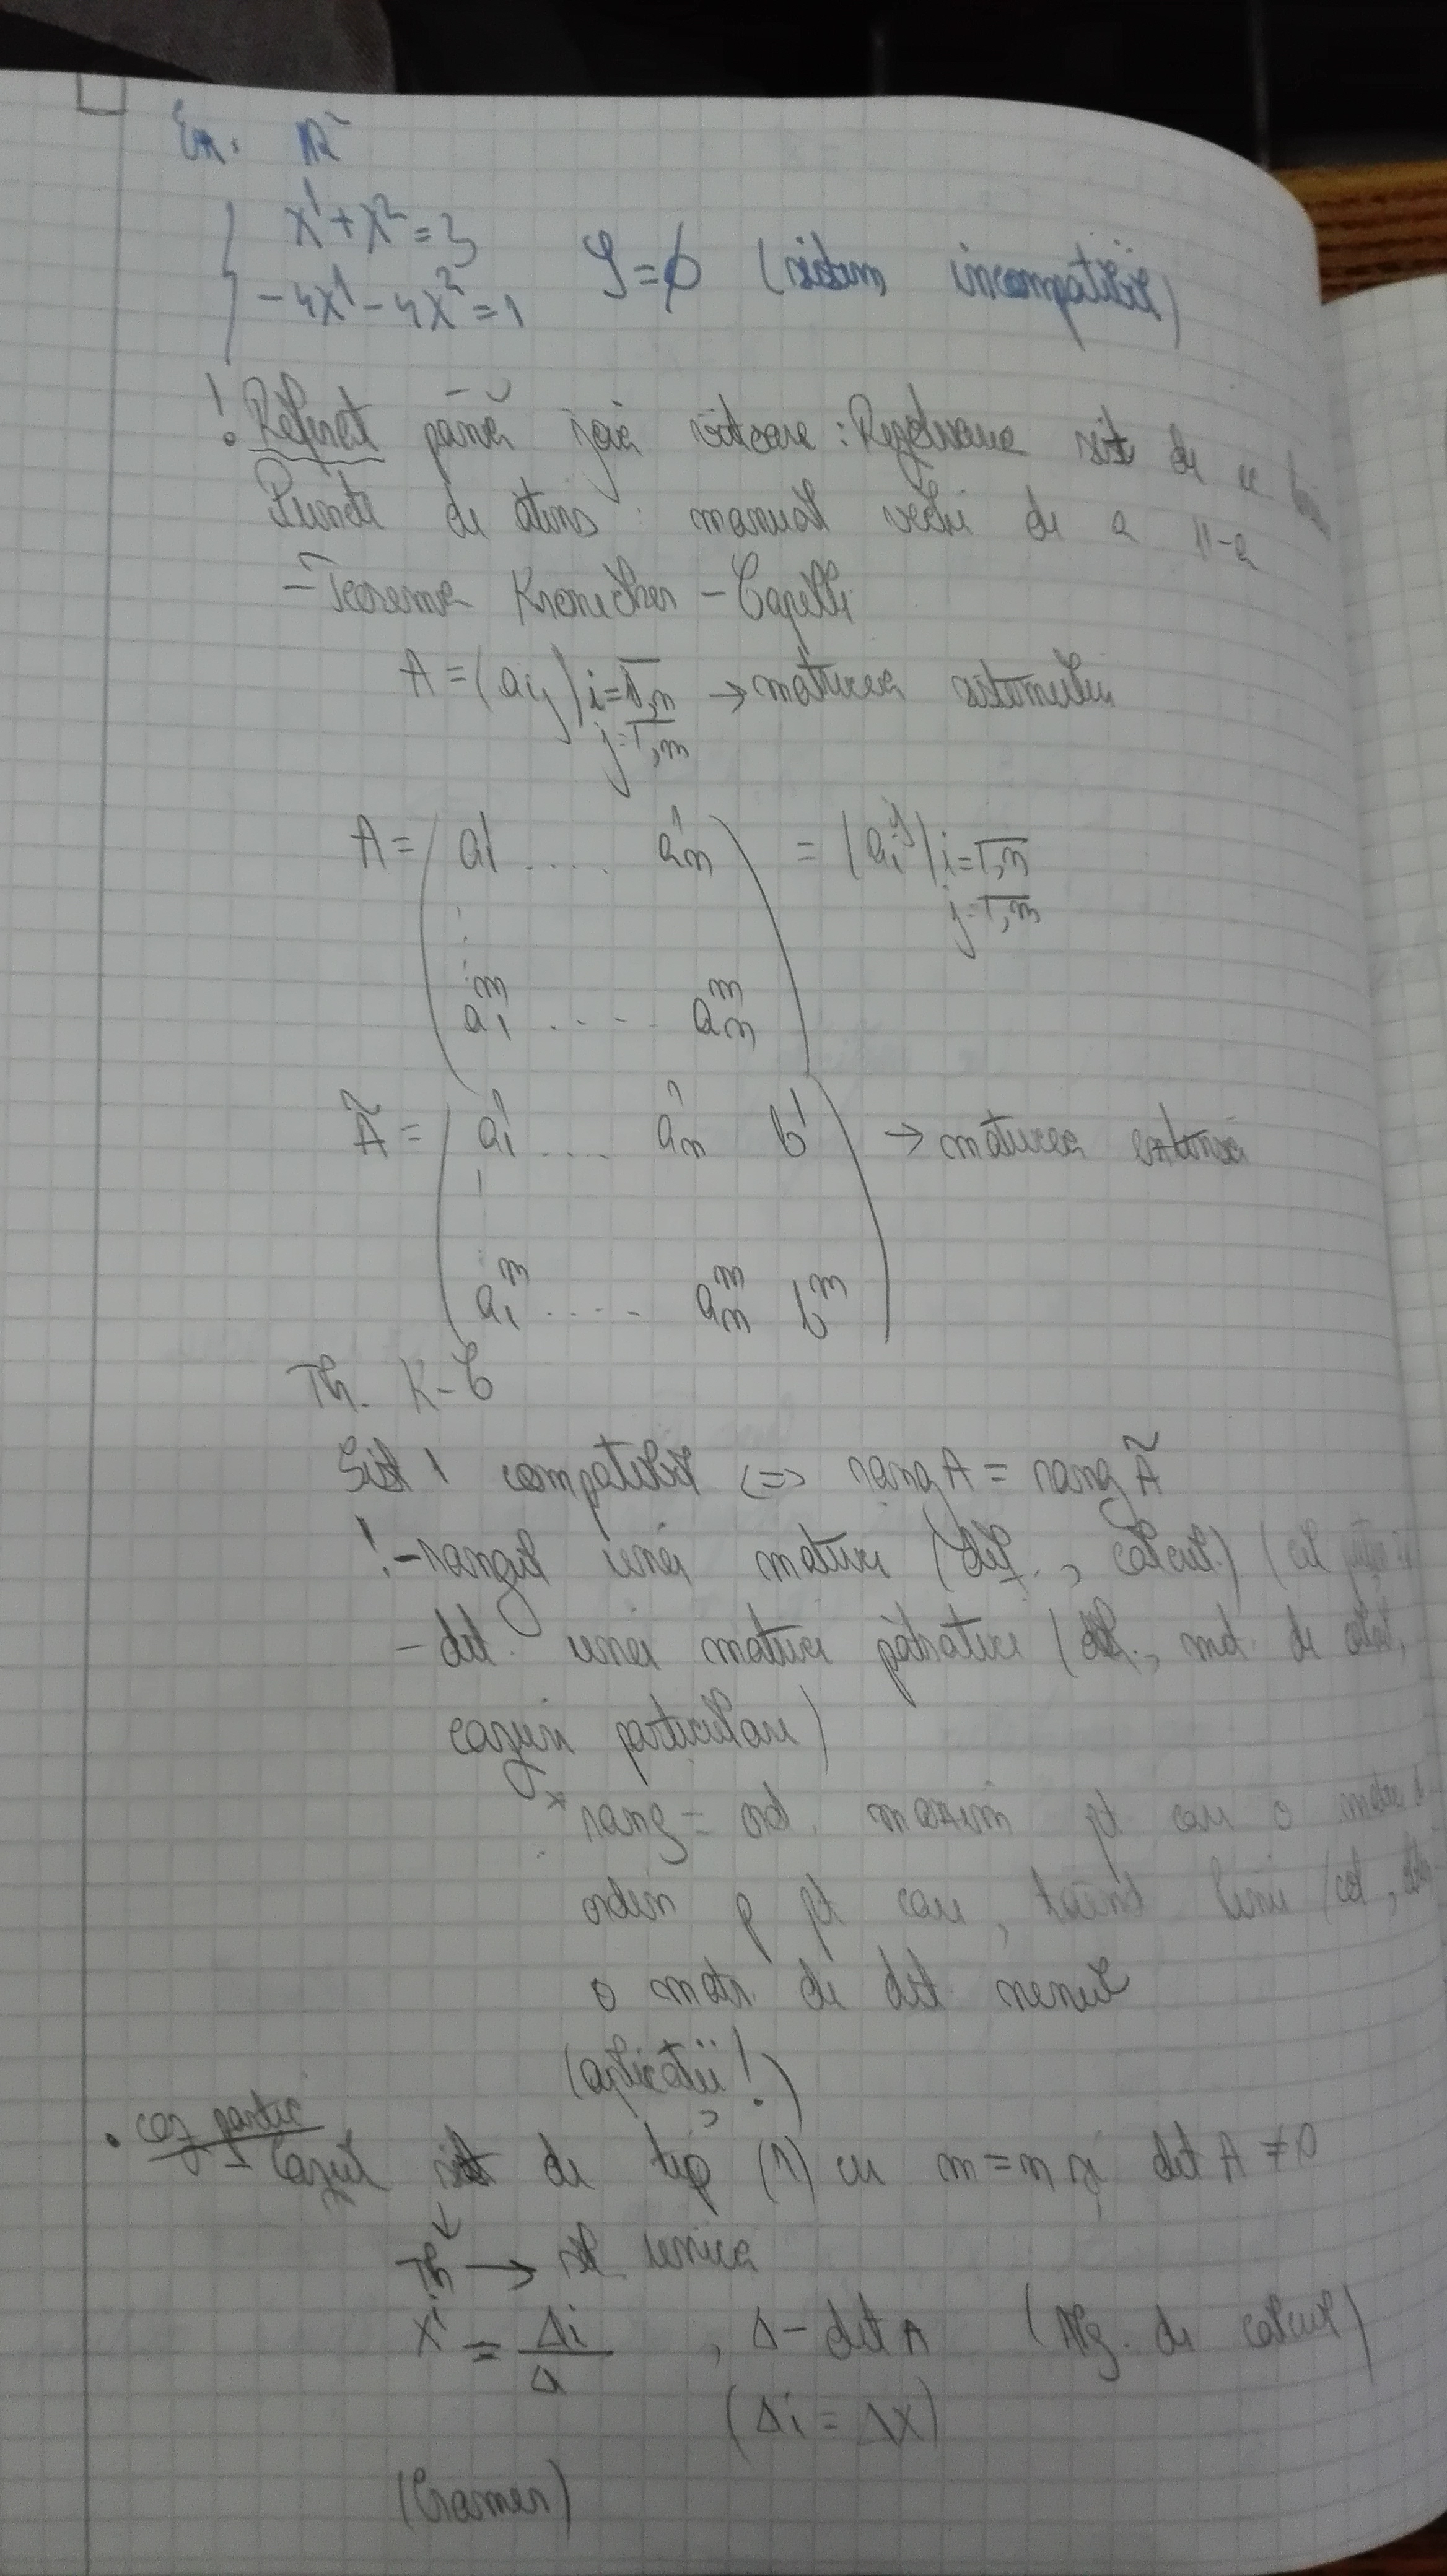 Ex. R²
x¹+x²=3
-4x¹-4x²=1 S=∅ (sistem incompatibil)
! Referat până joia viitoare: Rezolvarea sist de ec
Puncte de atins: manual vechi de a 11-a
- Teorema Kronecker - Capelli
A = (aij) i=1,n → matricea sistemului
j=1,m
A = ( a¹₁ .... a¹n ) = (aᵢʲ) i=1,n
j=1,m
aᵐ₁ .... aᵐn
Ã = ( a¹₁ .... a¹n b¹ ) → matricea extinsă
aᵐ₁ .... aᵐn bᵐ
Th. K-C
Sist 1 compatibil <=> rang A = rang Ã
! - rangul unei matrici (def., calcul)
- det. unei matrici pătratice (def., md. de
cazuri particulare)
* rang = ord. maxim pt care o
ordin p pt care, tăind linii (col,
o matr. de det. nenul
(aplicații!)
• caz partic
- Cazul sist de tip (1) cu m=n și det A ≠ 0
↓
Th → sol. unică
xⁱ = Δi/Δ , Δ - det A (Alg. de calcul)
(Δi = Δx)
(Cramer)